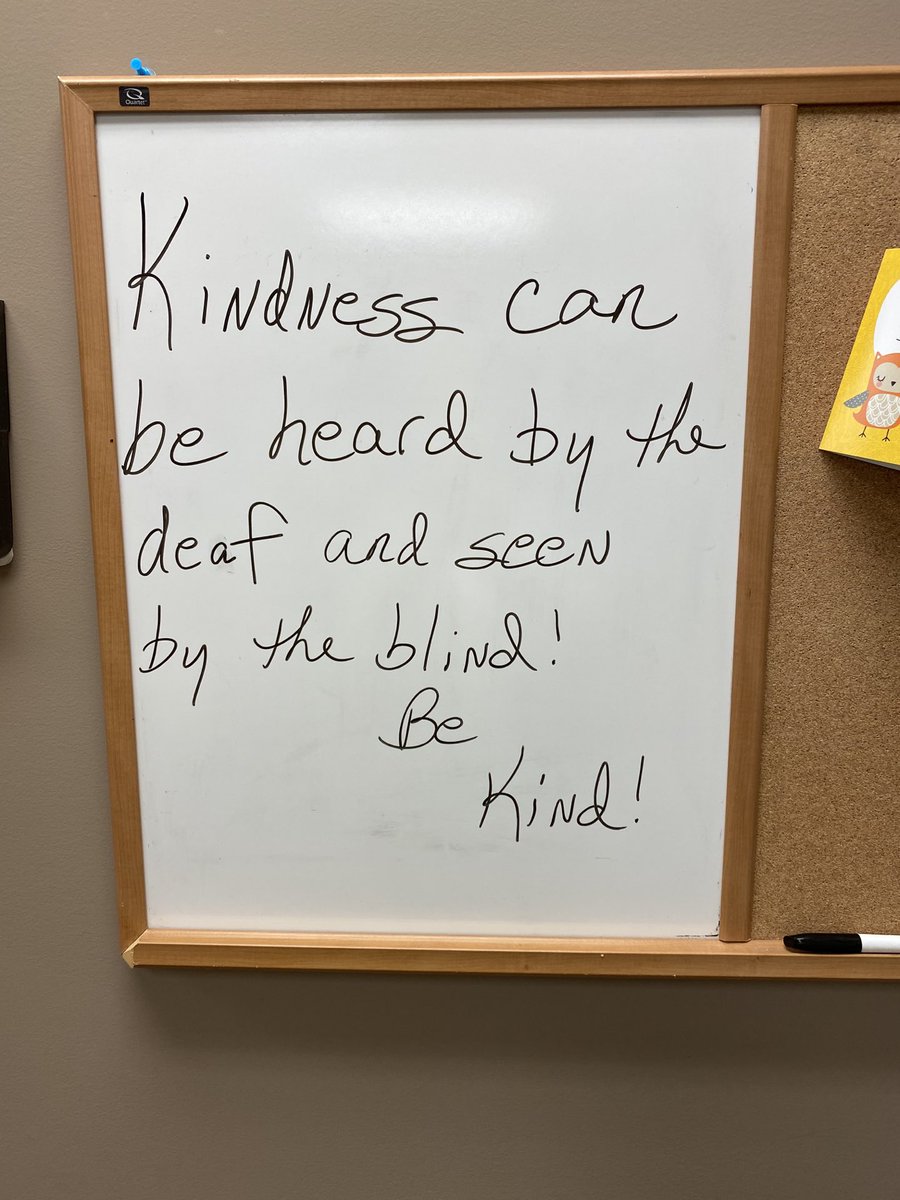 Quartet
Kindness can
be heard by the
deaf and seen
by the blind!
Be
Kind!